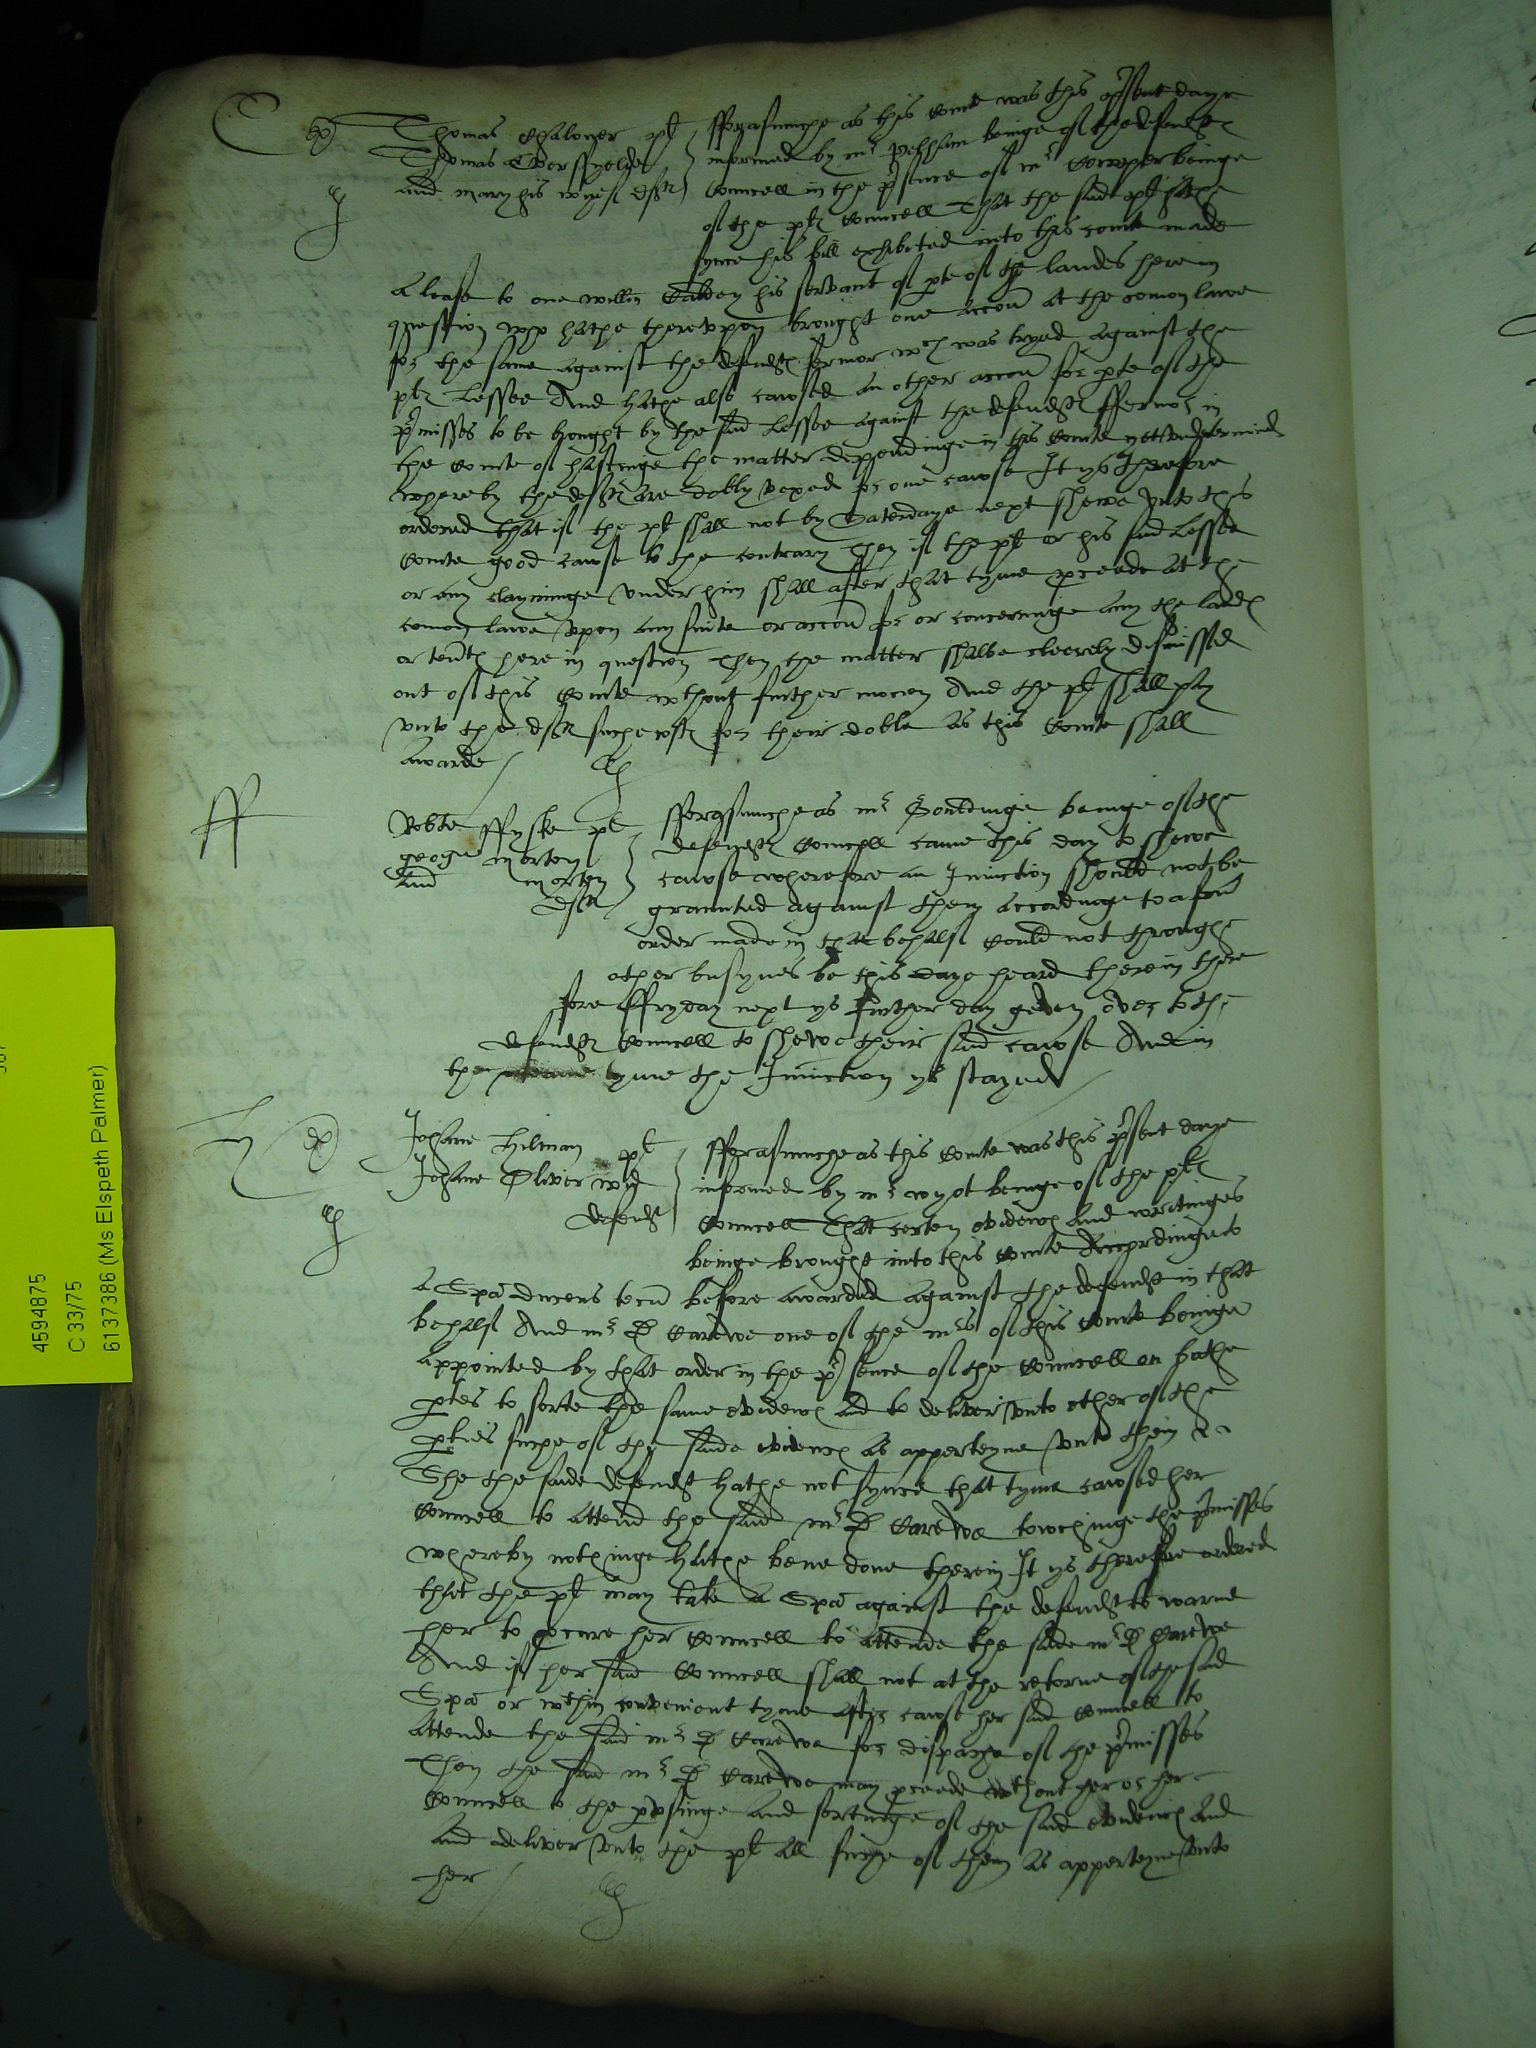 Thomas Chaloner pl
Thomas Eversfyelde
and Mary his wyef deftes
Fforasmuche as this Courte was this present daye
informed by mr Pelham beinge of the defendtes
Councell in the presence of mr Cowper beinge
of the pltes Councell That the said pl hathe
synce his bill exhibited into this courte made
A lease to one Willm his servant of parte of the landes here in
question who hathe thereupon brought one accon at the comon lawe
for the same against the defendtes fermor wch was tryed against the
pltes Lessee And hathe also caused an other accon for parte of the
premisses to be brought by the said Lessee against the defendtes ffermor in
the Courte of hastinge the matter dependinge in this Courte yet undetermined
whereby the deftes are dobly vexed for one cawse It ys therefore
ordered that if the pl shall not by Saterdaye next shewe unto this
Courte good cawse to the contrary Then if the pl or his said Lessee
or any clayminge under him shall after that tyme procede at the
comon lawe upon any suite or accon for or concerninge any the landes
or tentes here in question Then the matter shalbe cleerely dismissed
out of this Courte wthout further mocion And the pl shall pay
unto the deftes suche costes for their doble as this Courte shall
awarde
Robte ffyske pl
George Morton
and Morton
deftes
fforasmuche as mr Gouldinge beinge of the
defendtes Councell came this day to shewe
cawse wherefore an Iniunction should not be
graunted against them accordinge to a form
order made in that behalf Could not throughe
other busynes be this daye heard therein there
fore ffryday next ys further day geven over to the
defendtes Councell to shewe their said cawse And in
the meane tyme the Iniunction ys stayed
Johane Hilman pl
Johane Oliver wid
defendt
fforasmuche as this Courte was this present daye
informed by mr wyot beinge of the pltes
Councell That certen evidences and writinges
beinge brought into this Courte Accordinge to
A Spa ducens tecu before awarded against the defendt in that
behalf And mr D Carewe one of the mrs of this Courte beinge
appointed by that order in the presence of the Councell on bothe
partes to sorte the same evidences and to deliver unto ether of the
parties suche of the saide evidences as apperteyne unto them
She the saide defendt hathe not synce that tyme cawsed her
Councell to attend the said mr D Carewe towchinge the premisses
whereby nothinge hathe bene done therein It ys therefore ordered
that the pl may take A Spa against the defendt to warne
her to procure her Councell to attende the saide mr D Carewe
And if her said Councell shall not at the retorne of the said
Spa or wthin convenient tyme after cawse her said Councell to
attende the said mr D Carewe for dispatche of the premisses
Then the said mr D Carewe may procede wthout her or her
Councell to the perusinge and sortinge of the said evidences and
and deliver unto the pl all suche of them as apperteyne unto
her
4594875
C 33/75
6137386 (Ms Elspeth Palmer)